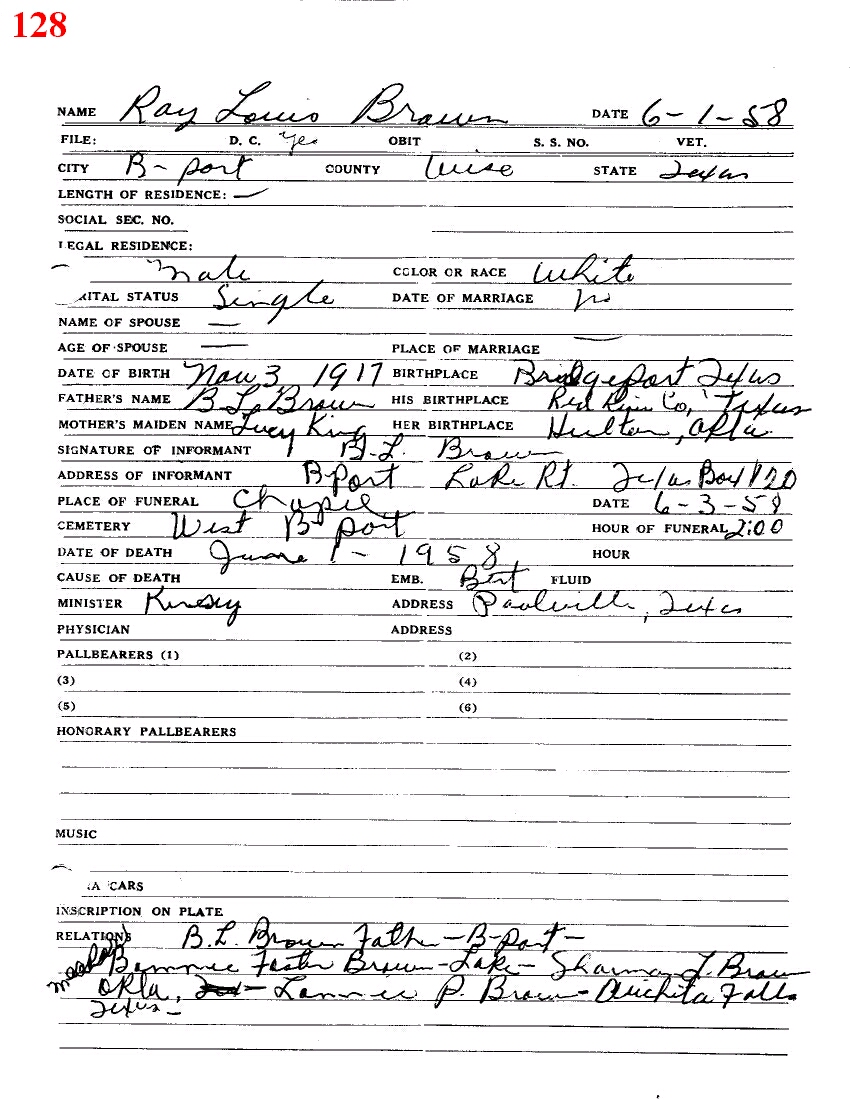 128
NAME Ray Louis Brown DATE 6-1-58
FILE: D. C. Yes OBIT S. S. NO. VET.
CITY B-port COUNTY Wise STATE Texas
LENGTH OF RESIDENCE: —
SOCIAL SEC. NO.
LEGAL RESIDENCE:
Male COLOR OR RACE White
RITAL STATUS Single DATE OF MARRIAGE no
NAME OF SPOUSE —
AGE OF SPOUSE — PLACE OF MARRIAGE —
DATE OF BIRTH Nov 3 1917 BIRTHPLACE Bridgeport Texas
FATHER'S NAME B L Brown HIS BIRTHPLACE Red River Co, Texas
MOTHER'S MAIDEN NAME Lucy King HER BIRTHPLACE Hulton, Okla.
SIGNATURE OF INFORMANT B.L. Brown
ADDRESS OF INFORMANT B-port Lake Rt. Texas Box 120
PLACE OF FUNERAL Chapel DATE 6-3-58
CEMETERY West B-port HOUR OF FUNERAL 2:00
DATE OF DEATH June 1 - 1958 HOUR
CAUSE OF DEATH EMB. Bert FLUID
MINISTER Kinsey ADDRESS Texas
PHYSICIAN ADDRESS
PALLBEARERS (1) (2)
(3) (4)
(5) (6)
HONORARY PALLBEARERS
MUSIC
A CARS
INSCRIPTION ON PLATE
RELATIONS B.L. Brown Father - B-port -
Foster Brown - Lake - Sharman L. Brown
Okla, - Lonnie P. Brown - Wichita Falls
Texas -